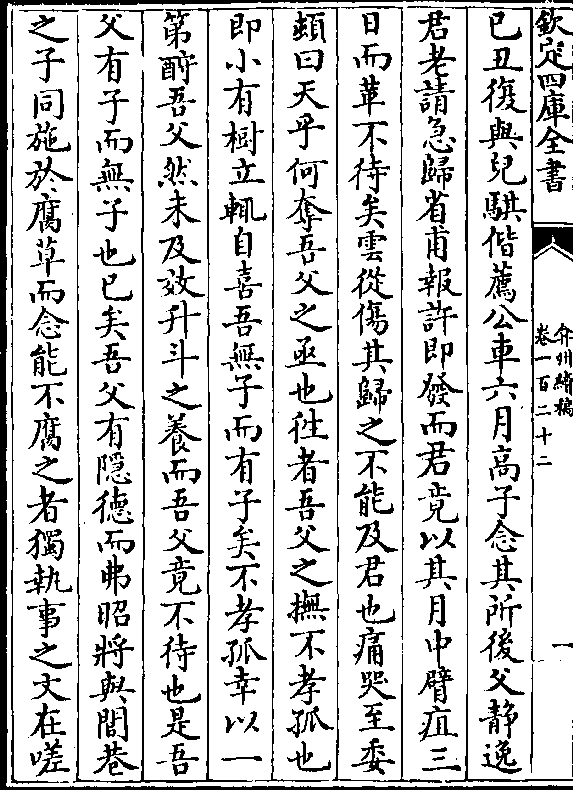 欽定四庫全書
弇州續稿
卷一百二十二
一
己丑復與兒騏偕薦公車六月高子念其所後父靜逸
君老請急歸省甫報許即發而君竟以其月中臂疽三
日而革不待矣雲從傷其歸之不能及君也痛哭至委
頓曰天乎何奪吾父之亟也徃者吾父之撫不孝孤也
即小有樹立輒自喜吾無子而有子矣不孝孤幸以一
第酧吾父然未及效升斗之養而吾父竟不待也是吾
父有子而無子也已矣吾父有隱德而弗昭將與閭巷
之子同施於腐草而念能不腐之者獨執事之文在嗟